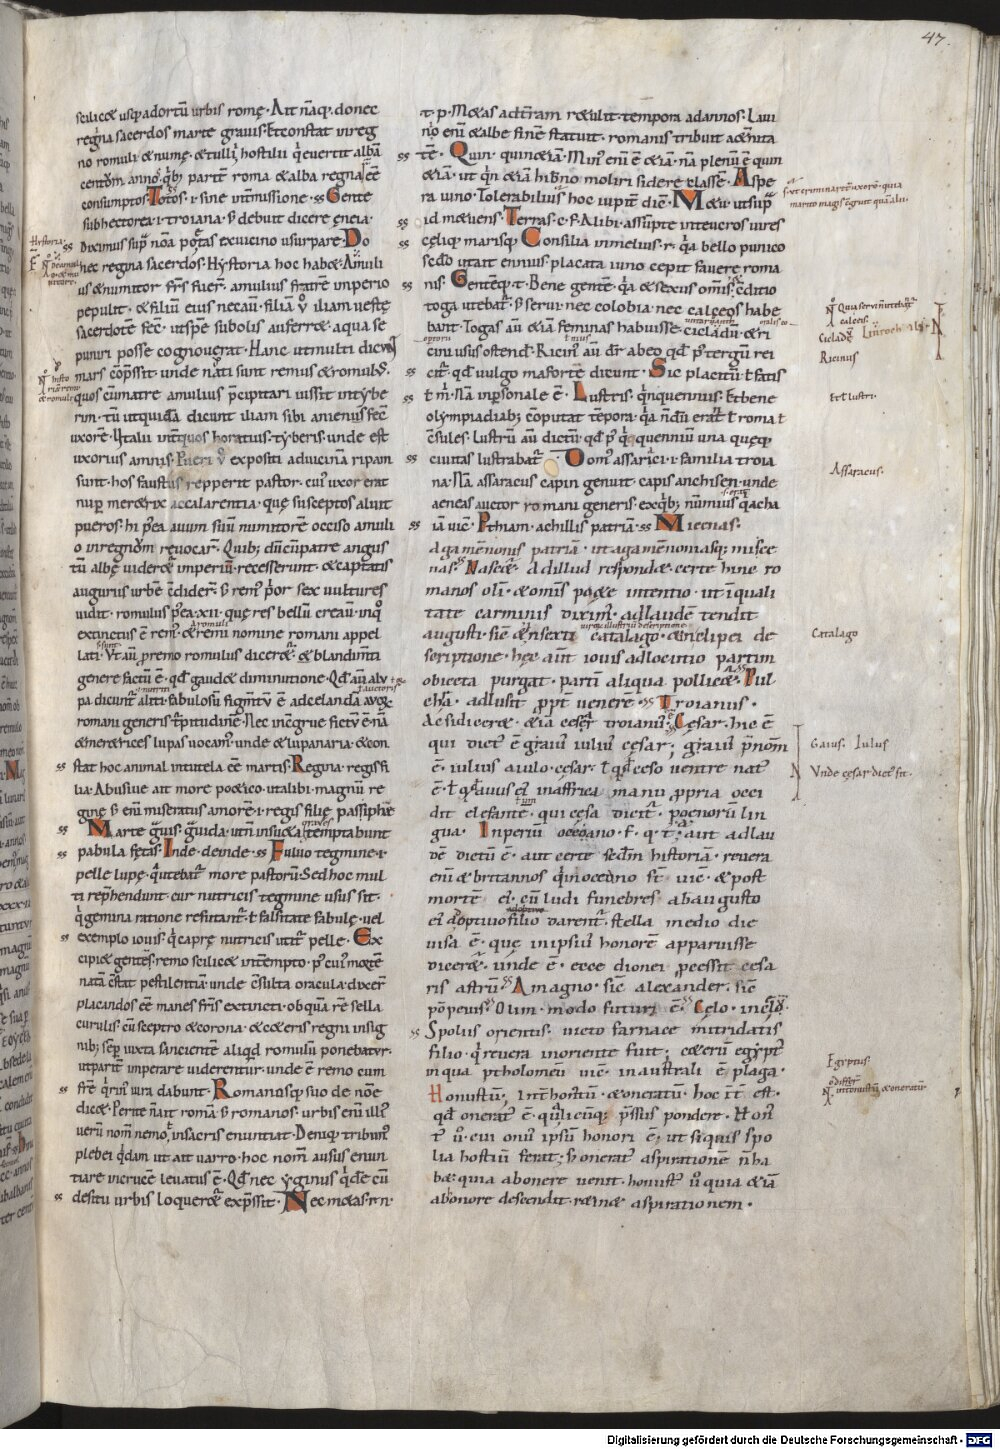 47.
scilicet usq; ad ortũ urbis romę. Ait nãq. donec
regina sacerdos marte grauis. Et constat vi reg
no romuli & numę. & tullii hostilii q̃ euertit albã
centũm annoꝝ. qb; partẽ roma & alba regna eẽ
consumptos. Totos. i. sine intmissione. Gente
sub hectorea. i. troiana. s; debuit dicere ęneia.
Diximus sup nõa poetas ex uicino usurpare. Do
nec regina sacerdos. Hystoria hoc habet. Amuli
us & numitor frs fuer̃. amulius fratrẽ imperio
pepulit. & filiũ eius necauit. filiã ũ iliam uestę
sacerdotẽ fec̃. ut spẽ subolis auferret. a qua se
puniri posse cognouerat. Hanc ut multi dicunt
mars cõp̃ssit. unde nati sunt remus & romulus.
quos cũ matre amulius p̃cipitari iussit in tybe
rim. tũ ut quidã dicunt iliam sibi anienus fec̃
uxorẽ. Alii int̃ quos horatius. tyberis. unde est
uxorius amnis. Pueri ũ expositi ad uicinã ripam
sunt. hos faustus repperit pastor. cui' uxor erat
nup meretrix acca larentia. quę susceptos aluit
pueros. hi p̃ea auum suũ numitorẽ occiso amuli
o in regnũm reuocar̃. Quib; dũ cũ patre angus
tũ albę uideret' imperiũ. recesserunt. & captatis
auguriis urbẽ cõdider̃. s; rem' p̃or sex uultures
uidit. romulus p̃ea. xii. quę res bellũ creauit. in q̃
extinctus ẽ rem'. & a remi nomine romani appel
lati. Vt aũ p̃ remo romulus diceret' & blandimti
genere factũ ẽ. qd gaudet diminutione. Qd aũ a lu
pa dicunt' aliti. fabulosũ figmtũ ẽ ad celandã auctoꝝ
romani generis turpitudinẽ. Nec incongrue fictũ ẽ. nã
& meretrices lupas uocam'. unde & lupanaria. & con
stat hoc animal in tutela eẽ martis. Regina. regis fi
lia. Abusiue ait more poetico. ut alibi. magnũ re
ginę s; enĩ miseratus amorẽ. i. regis filię passiphę
Marte grauis. grauida. ut nĩ insueta temptabunt
pabula fętas. Inde. deinde. Fuluo tegmine. i.
pelle lupę. q̃ utebat' more pastorũ. Sed hoc mul
ti rep̃hendunt. cur nutricis tegmine usus sit.
q̃ gemina ratione refutant'. t falsitate fabulę. uel
exemplo iouis. q̃ caprę nutricis utit' pelle. Ex
cipiet gentẽ. remo scilicet intempto. p' cui' mortẽ
natã cõstat pestilentiã. unde cõsulta oracula dixer̃
placandos eẽ manes fr̃is extincti. ob quã rẽ sella
curulis. cũ sceptro & corona. & ceteris regni insig
nib; semp iuxta sancientẽ aliqd romulũ ponebatur.
ut parit̃ imperare uiderentur. unde ẽ remo cum
fr̃e q̃rin' iura dabunt. Romanosq; suo de nõe
dicet. Perite ñ ait romã. s; romanos. urbis enĩ illi'
uerũ nom̃ nemo' in sacris enuntiat. Deniq; tribun'
plebei q̃dam ut ait uarro. hoc nom̃ ausus enun
tiare in crucẽ leuatus ẽ. Qd nec uirginus q̃de cũ
de situ urbis loqueret' exp̃ssit. Nec metas rr̃.
t. p. Metas ad terram retulit. tempora ad annos. Laui
nio enĩ & albę finẽ statuit. romanis tribuit aet̃nita
tẽ. Quin. quin etiã. Min' enĩ ẽ etiã. nã plenũ ẽ quin
etiã. ut q̃n etiã hiberno moliri sidere classẽ. Aspe
ra iuno. Tolerabilius hoc iupit̃ dic̃. Metu. ut sup
id metuens. Terras. c. f. Alibi. assũpte in te ueros uires
cęliq; marisq; Consilia in melius. r. q̃a bello punico
secdo ut ait ennius. placata iuno cepit fauere roma
nis. Gentẽq; t. Bene gentẽ. q̃a & sexus om̃is. & cõditio
toga utebat'. s; serui nec colobia. nec calceos habe
bant. Togas aũ etiã feminas habuisse. cicladũ. & ri
cini usus ostend̃. Ricin' aũ dr̃ ab eo qd p' tergũ rei
cit'. qd vulgo maforte dicunt. Sic placitũ. t fatis
t m̃. Nã inp̃sonale ẽ. Lustris. q̃nquenniis. Et bene
olympiadiab; cõputat tẽpora. q̃a nõdũ erat t roma t
cõsules. Lustrũ aũ dictũ. qd p' q̃nquenniũ una quęq;
ciuitas lustrabat'. Dom' assarici. i. familia troia
na. Nã assaracus capin genuit. capis anchisen. unde
aeneas auctor romani generis. ex qb; nũmius q̃ acha
iã uic̃. Pthiam. achillis patriã. Miecnas.
agamẽnonis patriã. ut agamẽnoniasq; misce
nas. Nascet'. Ad illud respondet. certe hinc ro
manos oli. & om̃is poetę intentio. ut in quali
tate carminis dixim'. ad laudẽ tendit
augusti. sic̃ & in sexti catalago. & in clipei de
scriptione. hęc aũt iouis ad locutio partim
obiecta purgat. partĩ aliqua pollicet'. Pul
chã. ad lusit p̃pt' uenerẽ. Troianus.
Ac si diceret. & iã ceser̃ troian'. Cęsar. hic ẽ
qui dict' ẽ gaius iulius cęsar; gaius p̃nom̃
ẽ. iulius a iulo. cęsar. t qd ceso uentre nat'
ẽ. t qd auus ei' in affrica manu ppria occi
dit elefantẽ. qui cesa dicit' poenorũ lin
gua. Inperiũ occeano. f. q. t. aut ad lau
dẽ dictũ ẽ. aut certe scdm historiã. reuera
enĩ & britannos q̃ in oceano st̃ uic̃. & post
mortẽ ei'. cũ ludi funebres ab augusto
ei' adoptiuo filio darent'. stella medio die
uisa ẽ. quę in ipsiu' honorẽ apparuisse
diceret'. unde ẽ. ecce dionei p̃cessit cesa
ris astrũ. A magno. sic̃ alexander. sic̃
põpeius. Olim. modo futuri ẽ. Cęlo. in cęlũ.
Spoliis orientis. uicto farnace mitridatis
filio. q̃ reuera in oriente fuit; ceterũ egypt'
in qua ptholomeũ uic̃. in australi ẽ plaga.
Honustũ; Int̃ honustũ. & oneratũ. hoc int̃ est.
qd onerat' ẽ. qui licumq; p̃ssus pondere. Hon'
t' ũ. cui onus ipsum honori ẽ; ut siquis spo
lia hostiũ ferat; s; onerat' aspirationẽ ñ ha
bet. quia ab onere uenit. honust' ũ quia etiã
ab honore descendit. retinet aspirationem.
Hystoria
Quia serui ñ utebant'
calceis.
Cicladẽs
Ricinus
Et t lustri.
Assaracus.
Catalago
Gaius. Iulus
Vnde cęsar dict' sit.
Egyptus.
Digitalisierung gefördert durch die Deutsche Forschungsgemeinschaft - DFG